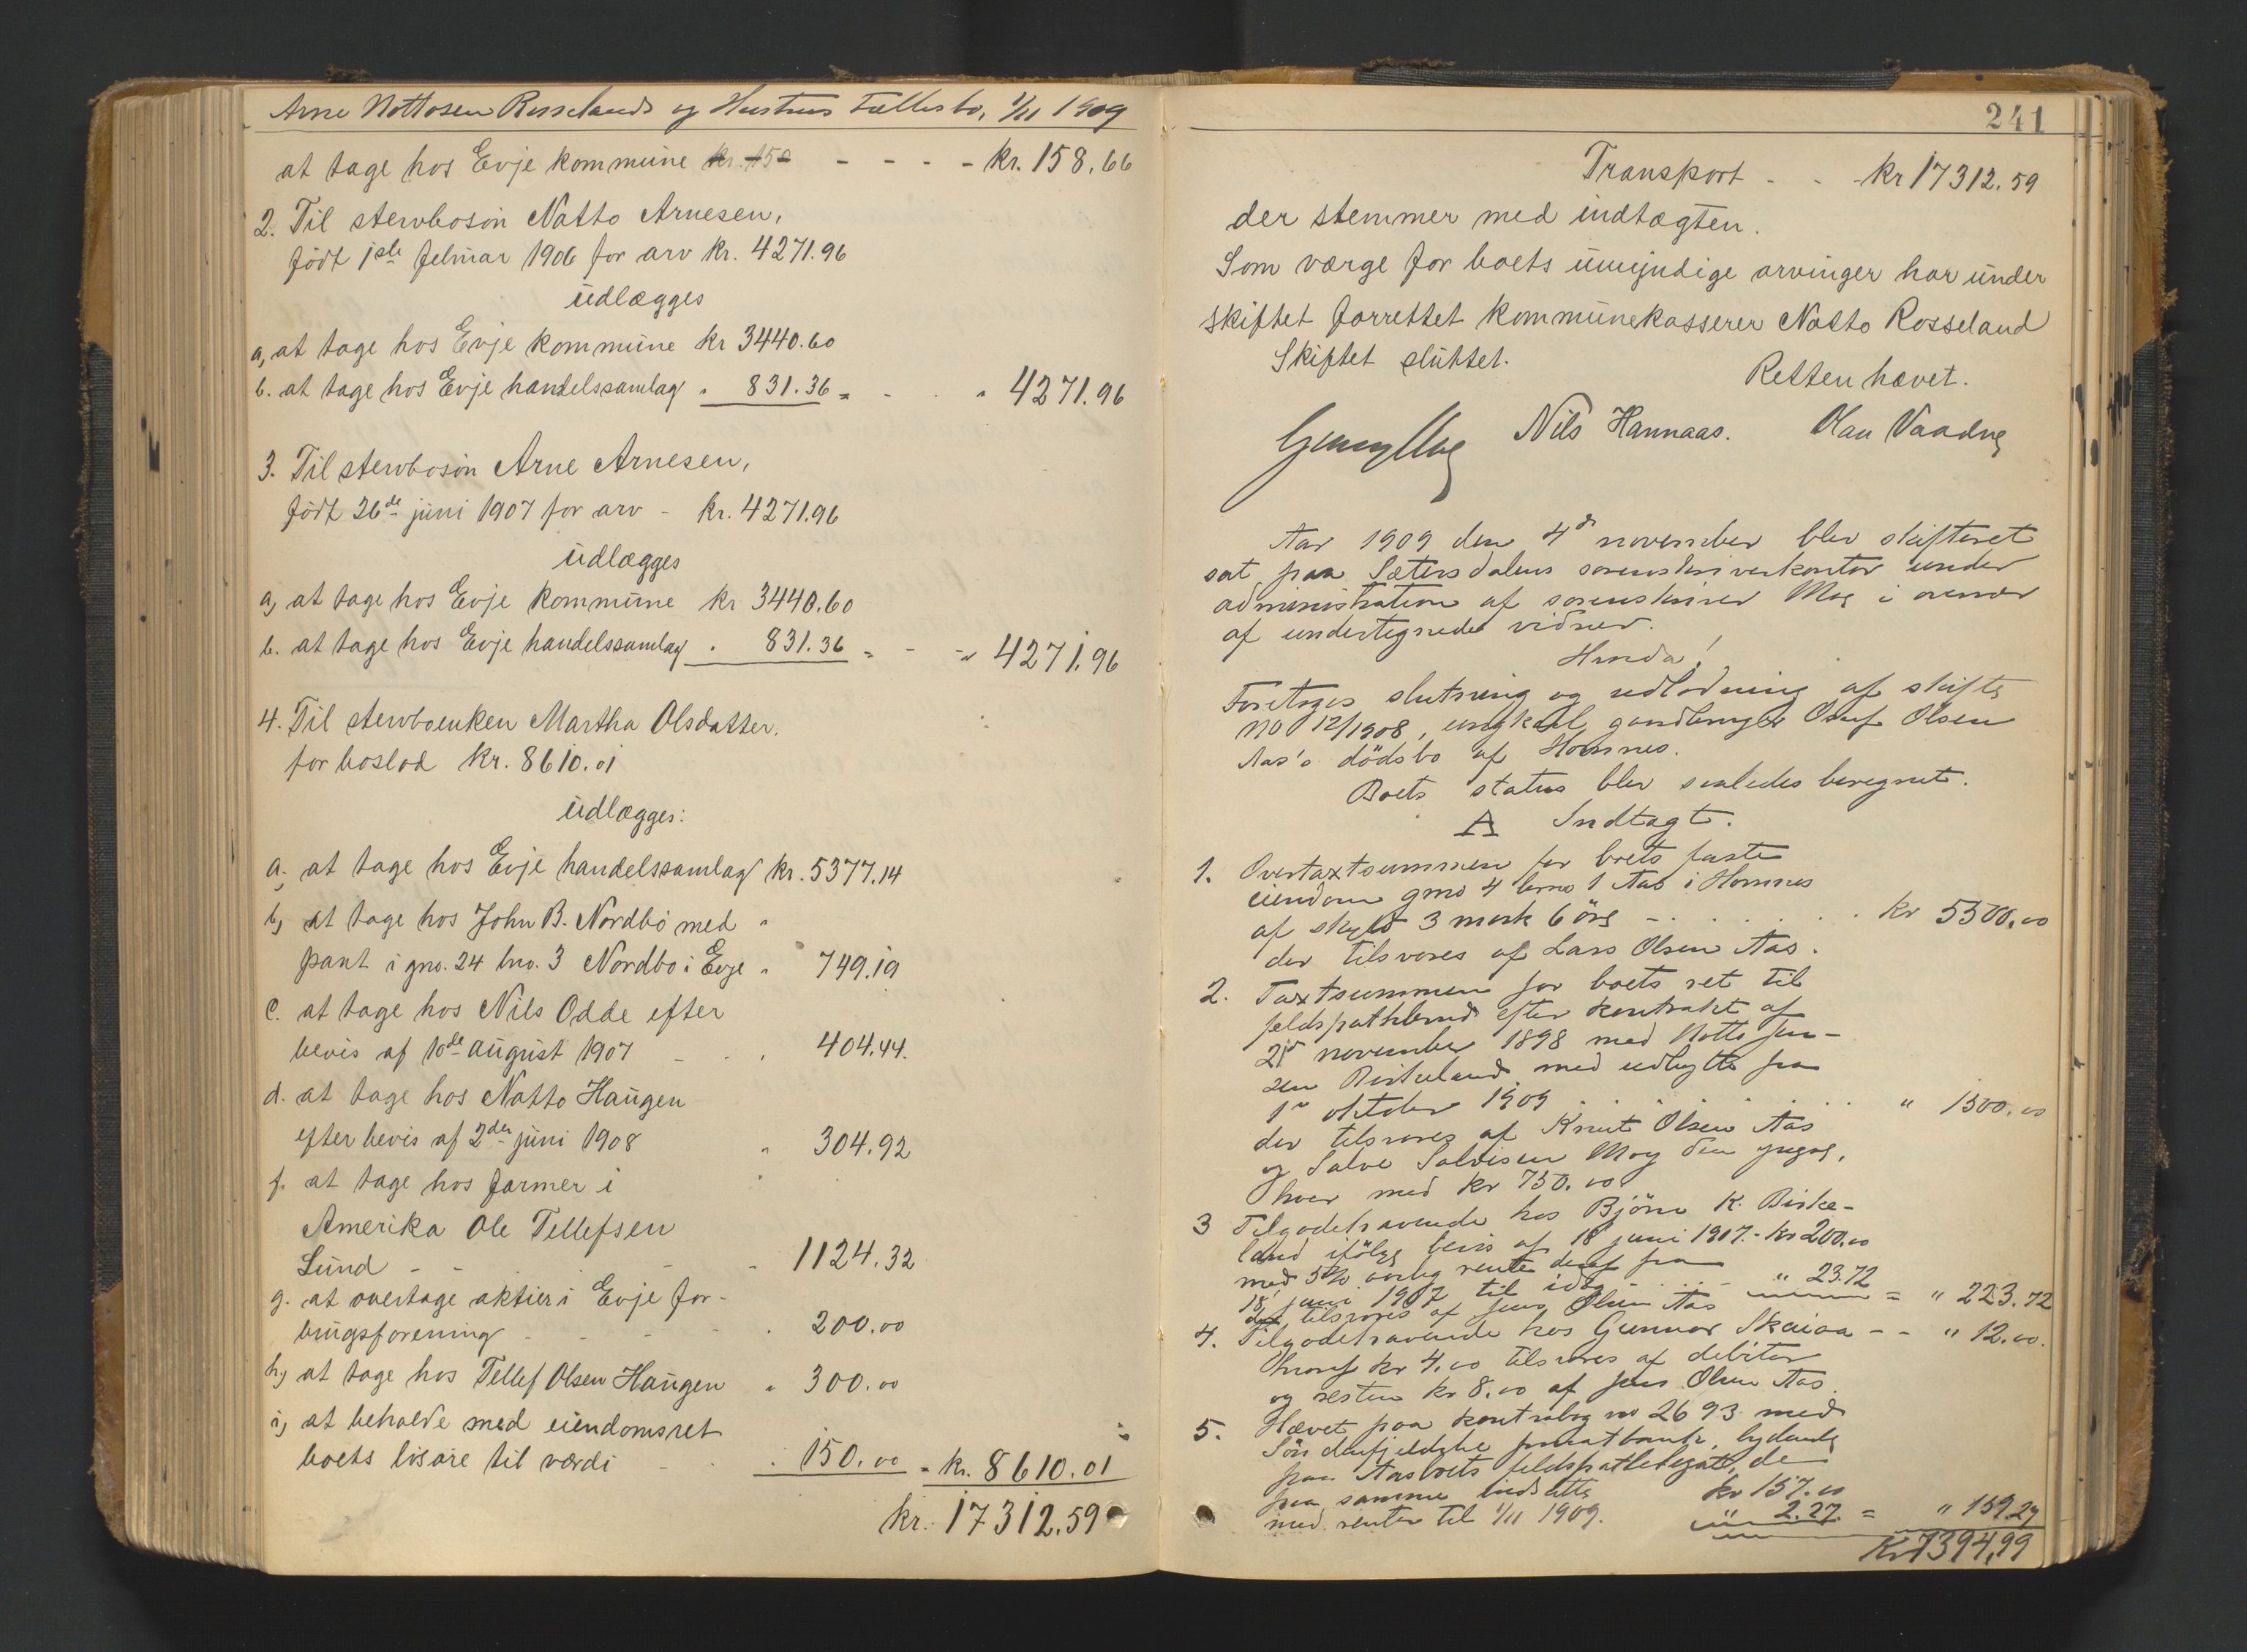 Arne Nottosen Rosselands og Hustrus Fællesbo, 1/11 1909
at tage hos Evje kommune kr. 150 - - - - kr. 158.66
2. Til stervbosön Notto Arnesen,
födt 1ste februar 1906 for arv kr. 4271.96
udlægges
a, at tage hos Evje kommune kr 3440.60
b. at tage hos Evje handelssamlag " 831.36 = - - " 4271.96
3. Til stervbosön Arne Arnesen,
födt 26de juni 1907 for arv - kr. 4271.96
udlægges
a, at tage hos Evje kommune kr 3440.60
b. at tage hos Evje handelssamlag " 831.36 = - - " 4271.96
4. Til stervboenken Martha Olsdatter.
for boslod kr. 8610.01
udlægges:
a; at tage hos Evje handelssamlag kr. 5377.14
b, at tage hos John B. Nordbö med "
pant i gno. 24 bno. 3 Nordbö i Evje " 749.19
c. at tage hos Nils Odde efter
bevis af 10de august 1907 - - " 404.44.
d. at tage hos Notto Haugen
efter bevis af 2den juni 1908 " 304.92
f. at tage hos farmer i
Amerika Ole Tellefsen
Lund - - - - 1124.32
g. at overtage aktier i Evje for-
brugsforening - - - - 200.00
h, at tage hos Tellef Olsen Haugen " 300.00
i, at beholde med eiendomsret
boets lösöre til værdi - - " 150.00 = kr. 8610.01
kr. 17312.59
241
Transport - - - kr 17312.59
der stemmer med indtægten.
Som værge for boets umyndige arvinger har under
skiftet forrettet kommunekasserer Notto Rosseland
Skiftet sluttet.
Retten hævet.
Nils Hannaas. Olau Vaadne
Aar 1909 den 4de november blev skifteret
sat paa Sætersdalens sorenskriverkontor under
administration af sorenskriver Moe i overvær
af undertegnede vidner.
Hvorda!
Foretoges slutning og udlodning af skifte
no 12/1908, ungkarl, gaardbruger Olsen
Aas's dödsbo af Hornnes.
Boets status blev saaledes beregnet.
A Indtægt.
1. Overtaxtsummen for boets faste
eiendom gno 4 bno 1 Aas i Hornnes
af skyld 3 mark 6 öre - . . . . . . kr 5500.00
der tilsvares af Lars Olsen Aas.
2. Taxtsummen for boets ret til
feldspathbrud efter kontrakt af
21de november 1898 med Notto Jen-
sen Birkeland med udbytte fra
1ste oktober 1909 . . . . . . " 1500.00
der tilsvares af Knut Olsen Aas
og Salve Salvesen Moy den yngre,
hver med kr 750.00
3 Tilgodehavende hos Björn K. Birke-
land ifölge bevis af 18 juni 1907. - kr 200.00
med 5% aarlig rente deraf fra
18 juni 1907 til idag - . . . - " 23.72 = " 223.72
der tilsvares af Jens Olsen Aas
4. Tilgodehavende hos Gunnar Skaiaa - - " 12.00.
hvoraf kr 4.00 tilsvares af debitor
og resten kr 8.00 af Jens Olsen Aas.
5. Hævet paa kontrabog no 2693 med
Söndenfjeldske privatbank, lydende
paa Aasboets feldspat, de
paa samme indsatte kr 157.00
med renter til 1/11 1909. " 2.27. = " 159.27
Kr 7394,99